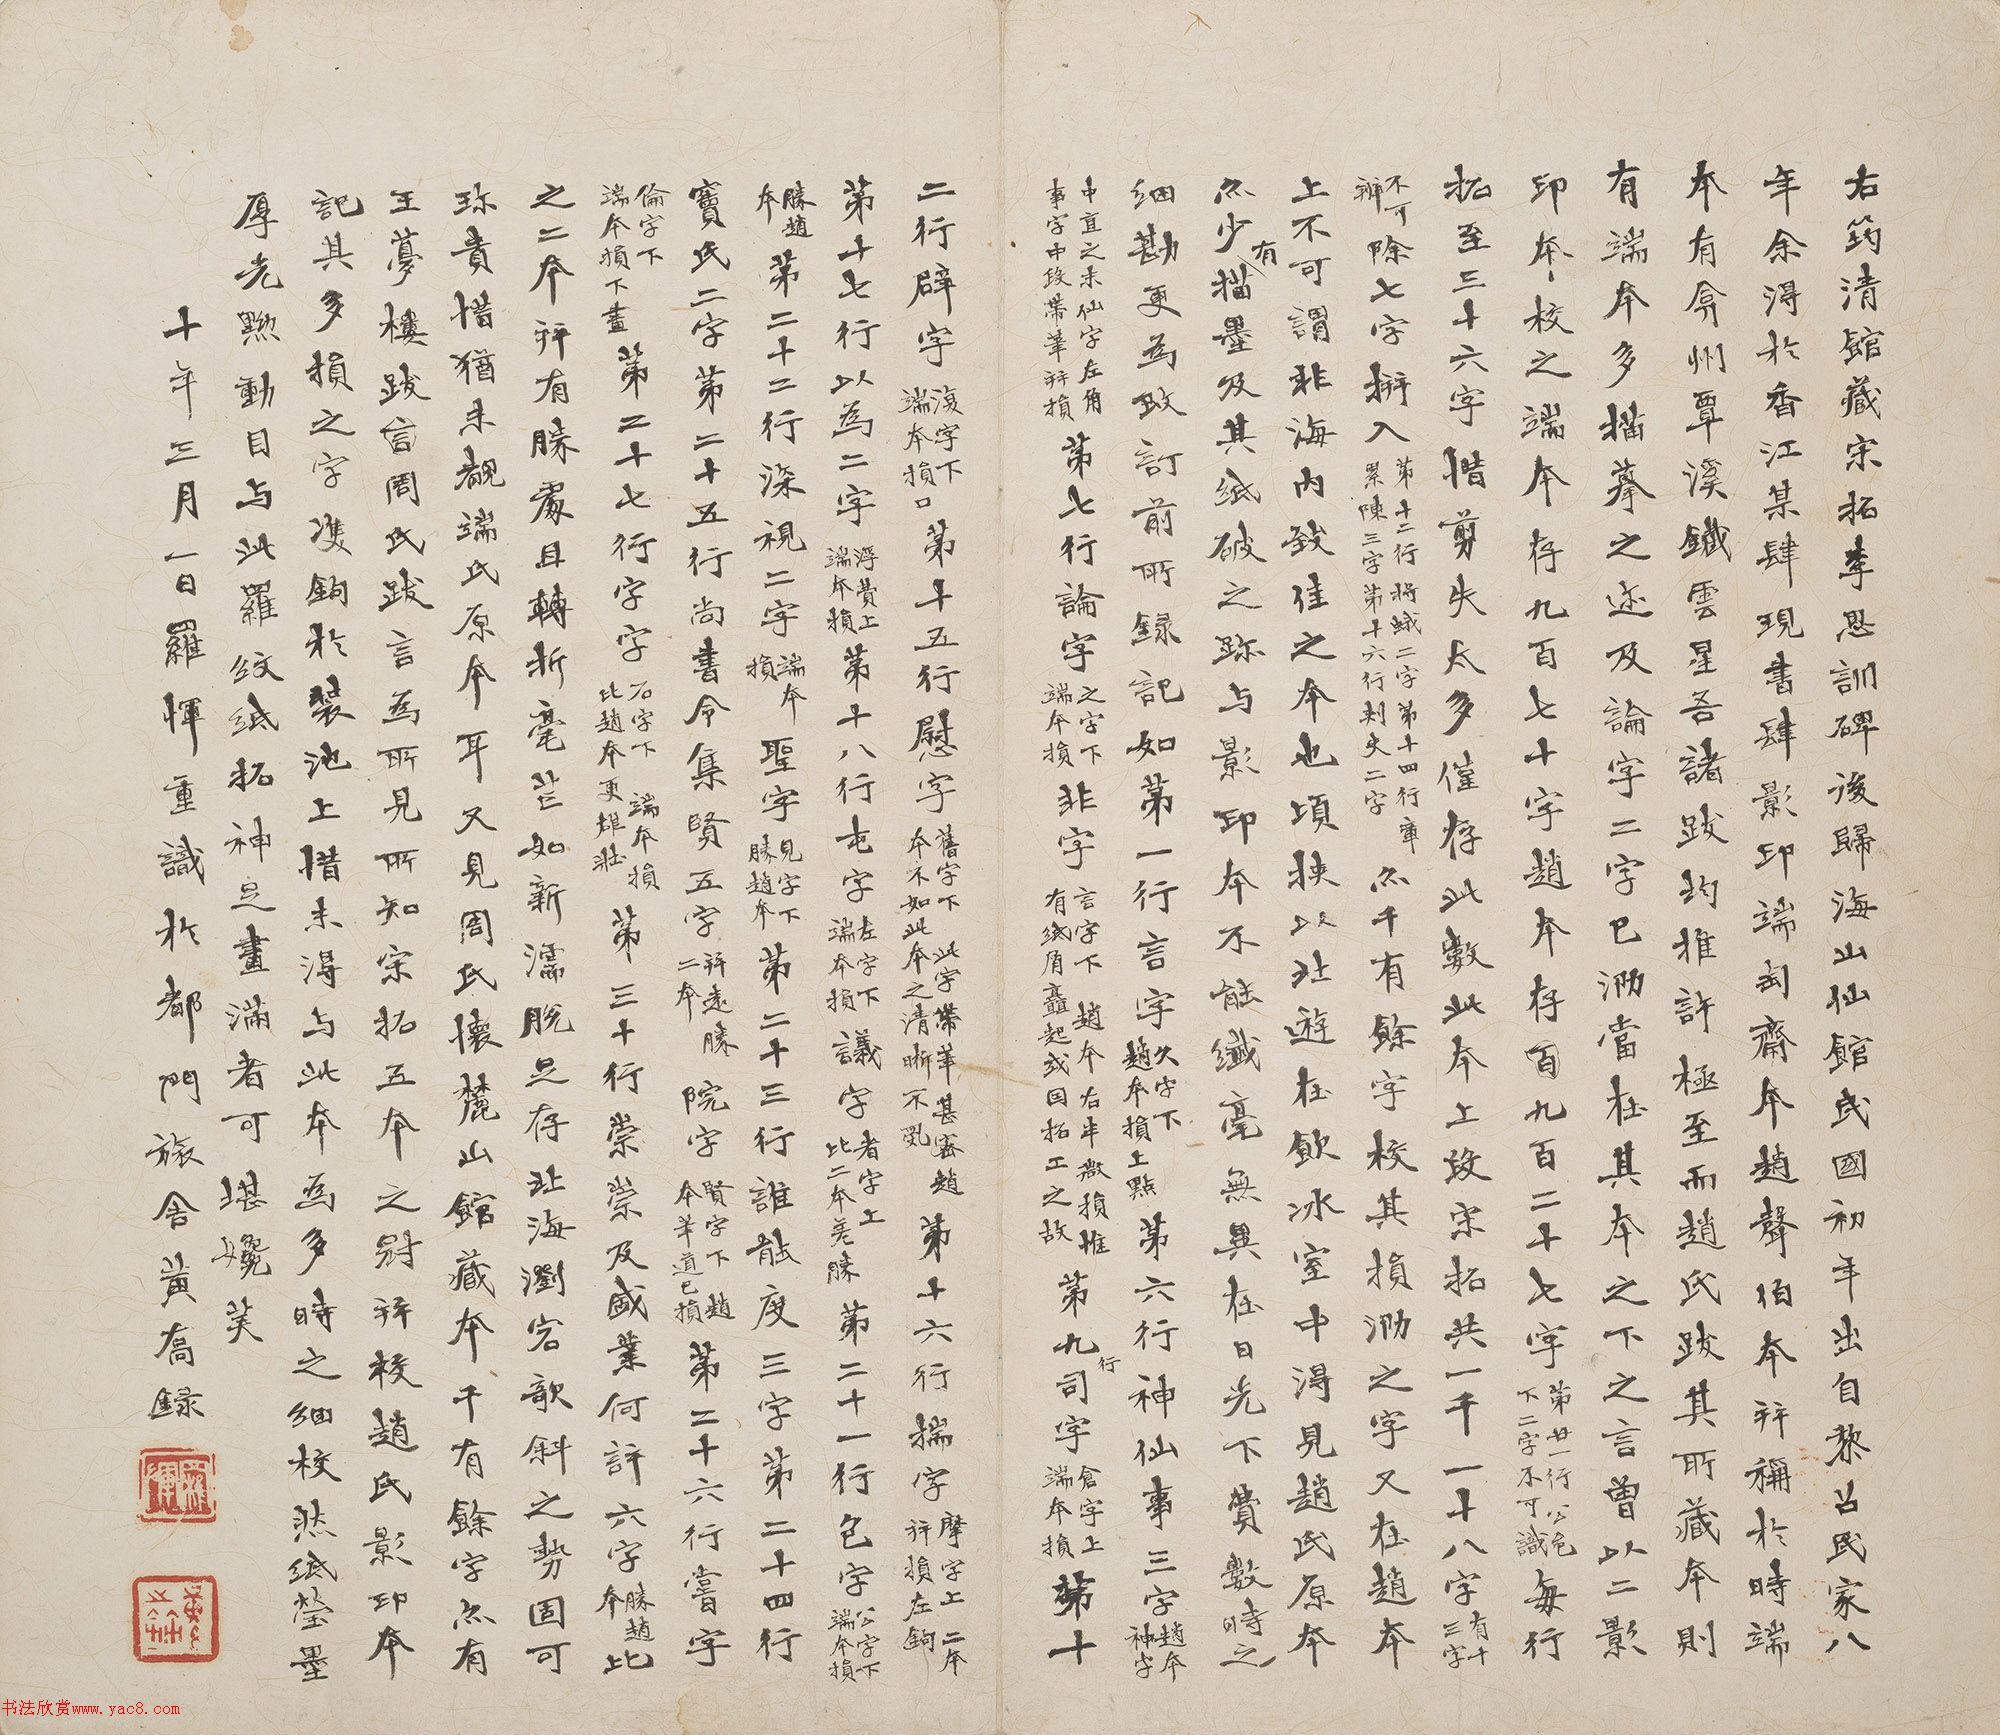 右筠清館藏宋拓李思訓碑後歸海山仙館民國初年出自黎召民家八
年余得於香江某肆現書肆影印端匋齋本趙聲伯本并稱於時端
本有弇州覃溪鐵雲星吾諸跋均推許極至而趙氏跋其所藏本則
有端本多描摹之迹及論字二字已泐當在其本之下之言曾以二影
印本校之端本存九百七十字趙本存百九百二十七字第廿一行公色下二字不可識每行
拓至三十六字惜剪失太多僅存此數此本上攷宋拓共一千一十八字有十三字
不可辨除七字拼入第十二行將蛾二字第十四行率累陳三字第十六行刺史二字亦千有餘字校其損泐之字又在趙本
上不可謂非海內致佳之本也頃挾以北遊在飲冰室中得見趙氏原本
亦少有描墨及其紙破之跡与影印本不能纖毫無異在日光下賞數時之
細勘更為攷訂前所錄記如第一行言字久字下趙本損上點第六行神仙事三字趙本神字
中直之末仙字左角事字中政帶筆并損第七行論字之字下端本損非字言字下趙本右半微損推有紙屑矗起或因拓工之故第九行司字倉字上端本損第十
二行辟字復字下端本損口第十五行慰字舊字下此字帶筆甚密趙本不如此本之清晰不亂第十六行揣字摩字上二本并損左鉤
第十七行以為二字浮費上端本損第十八行屯字左字下端本損議字者字上比二本羌勝第二十一行包字公字下端本損
勝趙本第二十二行深視二字端本損聖字見字下勝趙本第二十三行誰能度三字第二十四行
竇氏二字第二十五行尚書令集賢五字并遠勝二本院字賢字下趙本筆道已損第二十六行嘗字
倫字下端本損下畫第二十七行字字石字下端本損比趙本更雄壯第三十行崇崇及盛業何許六字勝趙本比
之二本并有勝處且轉折毫芒如新濡脫足存北海瀏宕欹斜之勢固可
珍貴惜猶未覩端氏原本耳又見周氏懷麓山館藏本千有餘字亦有
王夢樓跋信周氏跋言為所見所知宋拓五本之尉并校趙氏影印本
記其多損之字凌鉤於裝池上惜未得与此本為多時之細校然紙瑩墨
厚光黝動目与此羅紋紙拓神足畫滿者可堪媲美
十年三月一日羅惲重識於都門旅舍黃㐮錄
书法欣赏www.yac8.com